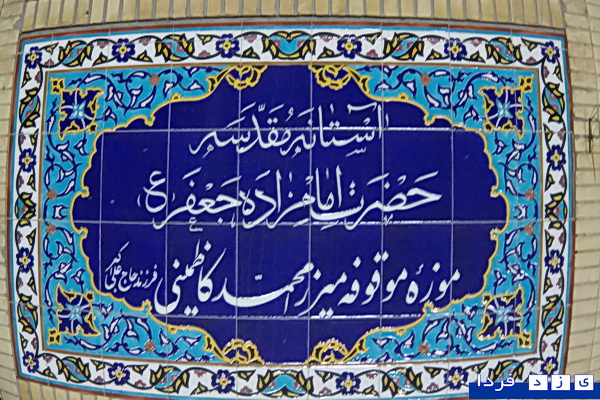 آستانه مقدسه
حضرت امامزاده جعفر (ع)
موزه موقوفه میرزا محمد کاظمینی فرزند حاج علی اکبر
یزد فردا